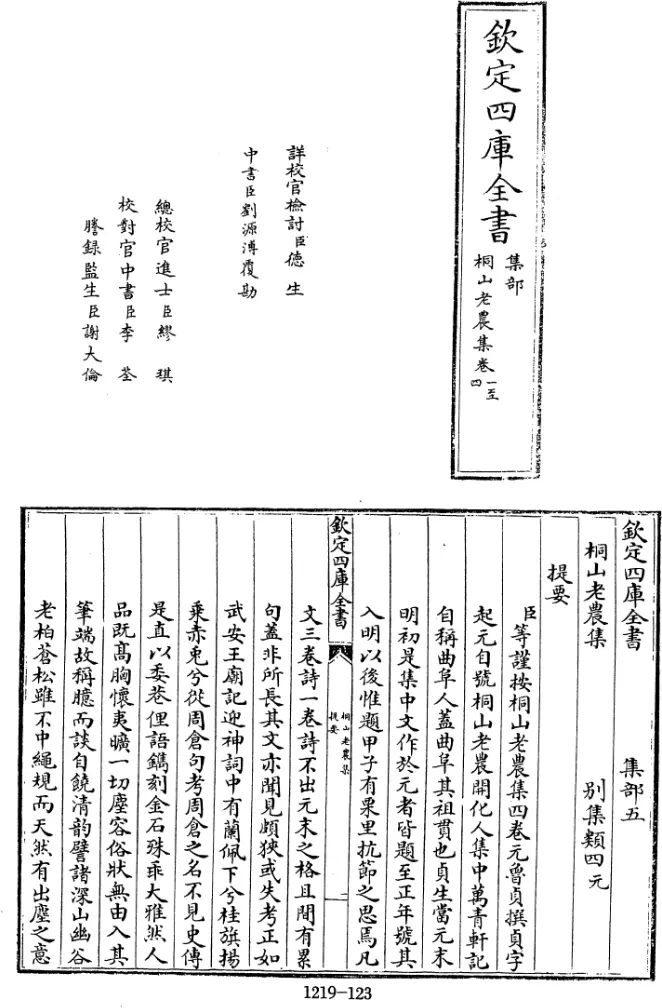 欽定四庫全書
集部
桐山老農集卷一至四
詳校官檢討臣德生
中書臣劉源溥覆勘
總校官進士臣繆琪
校對官中書臣李荃
謄録監生臣謝大倫
欽定四庫全書 集部五
桐山老農集 別集類四元
提要
臣等謹按桐山老農集四卷元魯貞撰貞字
起元自號桐山老農開化人集中萬青軒記
自稱曲阜人蓋曲阜其祖貫也貞生當元末
明初是集中文作於元者皆題至正年號其
入明以後惟題甲子有栗里抗節之思焉凡
欽定四庫全書
桐山老農集
提要
一
文三卷詩一卷詩不出元末之格且間有累
句蓋非所長其文亦聞見頗狹或失考正如
武安王廟記迎神詞中有蘭佩下兮桂旗揚
乘赤兎兮從周倉句考周倉之名不見史傳
是直以委巷俚語鐫刻金石殊乖大雅然人
品既髙胸懷夷曠一切塵容俗狀無由入其
筆端故稱臆而談自饒清韵譬諸深山幽谷
老柏蒼松雖不中繩規而天然有出塵之意
1219-123